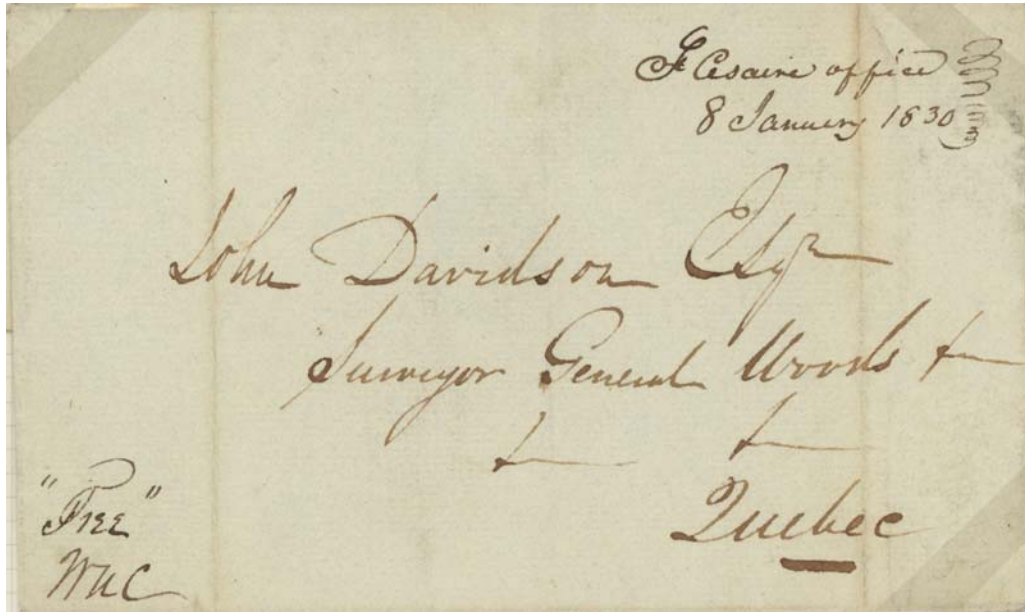 St Cesaire office
8 January 1830
John Davidson Esqr
Surveyor General Woods &
& &
Quebec
"Free"
WHC